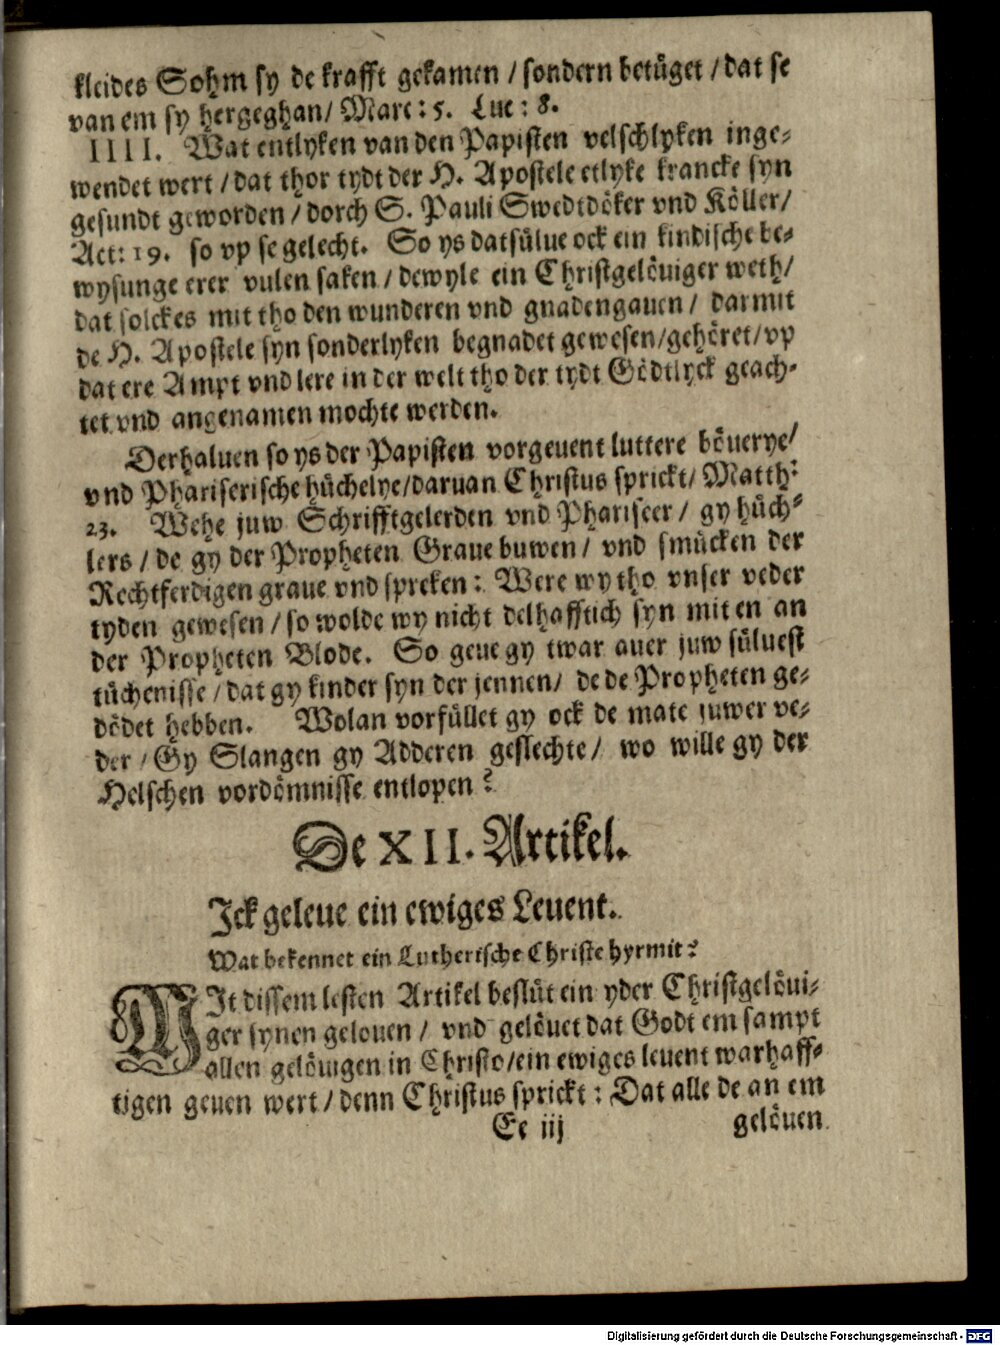 kleides Sohm sy de krafft gekamen / sondern betüget / dat se
van em sy hergeghan / Marc: 5. Luc: 8.
IIII. Wat entlyken van den Papisten velschlyken inge-
wendet wert / dat thor tydt der H. Apostele etlyke krancke syn
gesundt geworden / dorch S. Pauli Swedtdöker vnd Köller /
Act: 19. so vp se gelecht. So ys datsülue ock ein kindische be-
wysunge erer vulen saken / dewyle ein Christgelöuiger weth /
dat solckes mit tho den wunderen vnd gnadengauen / darmit
de H. Apostele syn sonderlyken begnadet gewesen / gehöret / vp
dat ere Ampt vnd lere in der welt tho der tydt Gödtlyck geach-
tet vnd angenamen mochte werden.
Derhaluen so ys der Papisten vorgeuent luttere böuerye /
vnd Phariserische hüchelye / daruan Christus sprickt / Matth:
23. Wehe juw Schrifftgelerden vnd Phariseer / gy hüch-
lers / de gy der Propheten Graue buwen / vnd smücken der
Rechtferdigen graue vnd spreken: Were wy tho vnser veder
tyden gewesen / so wolde wy nicht delhafftich syn mit en an
der Propheten Blode. So geue gy twar auer juw süluest
tüchenisse / dat gy kinder syn der jennen / de de Propheten ge-
dödet hebben. Wolan vorfüllet gy ock de mate juwer ve-
der / Gy Slangen gy Adderen geslechte / wo wille gy der
Helschen vordömnisse entlopen?
De XII. Artikel.
Ick geleue ein ewiges Leuent.
Wat bekennet ein Lutherische Christe hyrmit?
MIt dissem lesten Artikel beslüt ein yder Christgelöui-
ger synen gelouen / vnd gelöuet dat Godt em sampt
allen gelöuigen in Christo / ein ewiges leuent warhaff-
tigen geuen wert / denn Christus sprickt: Dat alle de an em
Ee iij gelöuen
Digitalisierung gefördert durch die Deutsche Forschungsgemeinschaft - DFG